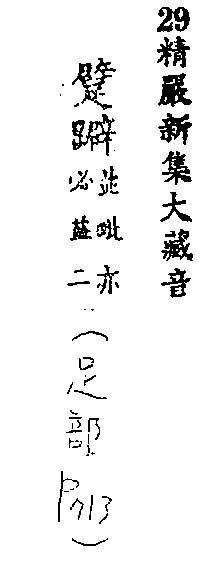 29精嚴新集大藏音
躄躃
並毗亦
必益二
(足部P713)